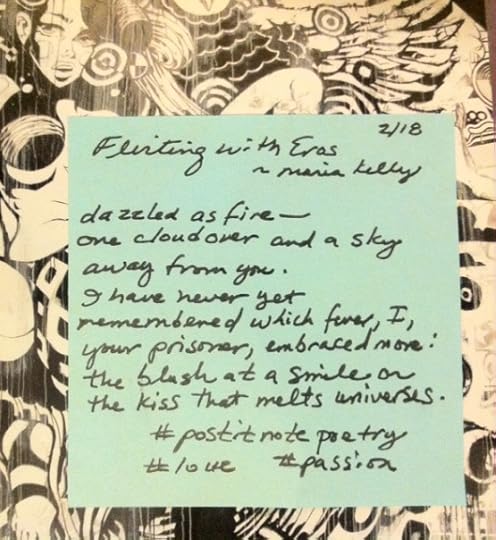 2/18
Flirting with Eros
~ maria kelly
dazzled as fire—
one cloud over and a sky
away from you.
I have never yet
remembered which fever, I,
your prisoner, embraced more:
the blush at a smile or
the kiss that melts universes.
#postitnotepoetry
#love #passion